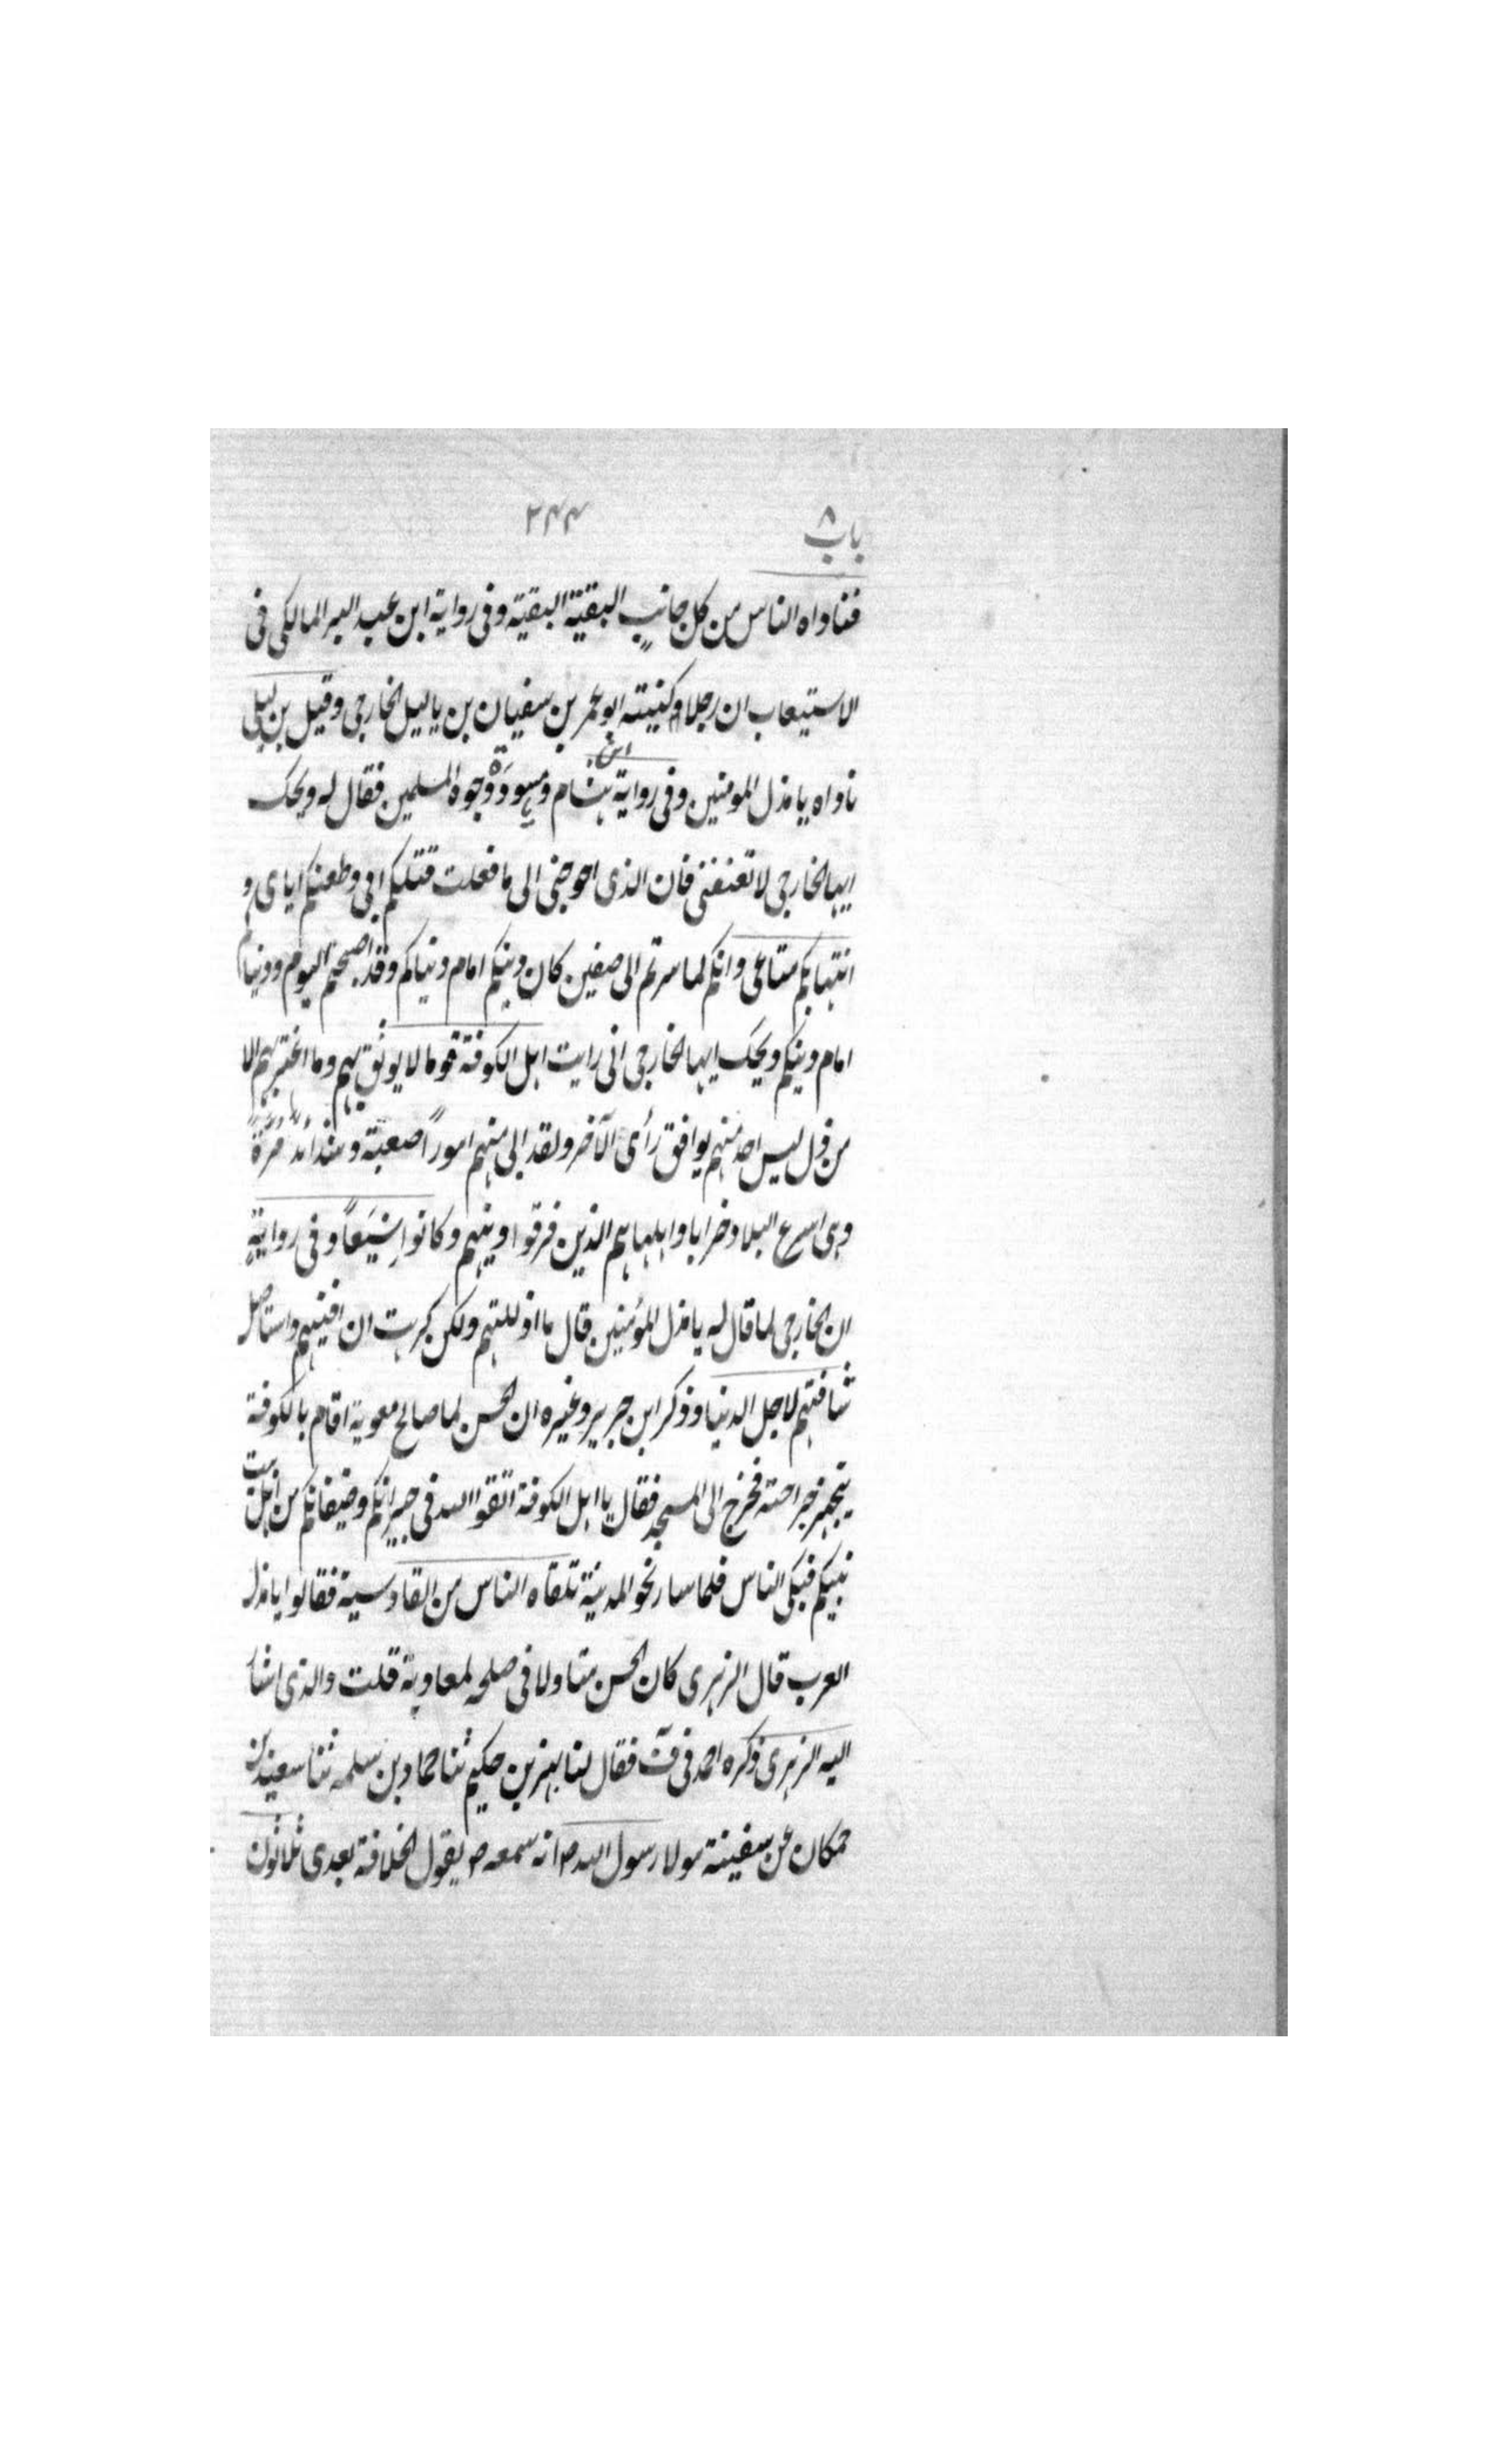 باب ٨
٢٤٤
فناداه الناس من كل جانب البقية البقية وفى رواية ابن عبد البر المالكى فى
الاستيعاب ان رجلا وكنيته ابو عمر بن سفيان بن ياليل الخارجى وقيل بن ليلى
ناداه يا مذل المومنين وفى رواية ابن هشام ومسودة وجوه المسلمين فقال له ويحك
ايها الخارجى لا تعنفنى فان الذى احوجنى الى ما فعلت قتلكم ابى وطعنكم اياى و
انتهابكم متاعى وانكم لما سرتم الى صفين كان دينكم امام دنياكم وقد اصبحتم اليوم ودنياكم
امام دينكم ويحك ايها الخارجى انى رايت اهل الكوفة قوما لا يوثق بهم وما اغتر بهم الا
من ذل ليس احد منهم يوافق رأى الآخر ولقد ابى منهم امورًا صعبة وشدائد مُرّة
وهى اسرع البلاد خرابا واهلها هم الذين فرقوا دينهم وكانوا شِيَعًا وفى رواية
ان الخارجى لما قال له يا مذل المؤمنين قال ما اذللتهم ولكن كرهت ان افنيهم واستاصل
شافتهم لاجل الدنيا وذكر ابن جرير وغيره ان الحسن لما صالح معوية اقام بالكوفة
يتجهز جراحته فخرج الى المسجد فقال يا اهل الكوفة اتقوا الله فى جيرانكم وضيفانكم من اهل بيت
نبيكم فبكى الناس فلما سار نحو المدينة تلقاه الناس من القادسية فقالوا يا مذل
العرب قال الزهرى كان الحسن متاولا فى صلحه لمعاوية قلت والذى اشار
اليه الزهرى ذكره احمد فى فقال لنا بهز بن حكيم ثنا حماد بن سلمه ثنا سعيد بن
جمكان عن سفينة مولا رسول الله ص انه سمعه ص يقول الخلافة بعدى ثلاثون